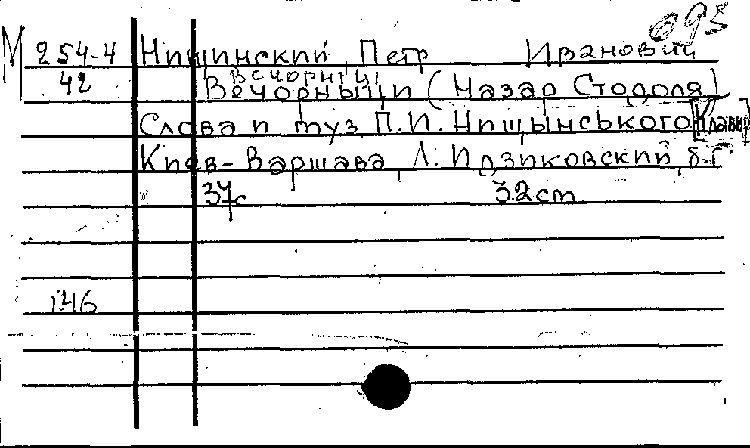 093
М 254-4 Нищинский Петр Иванович
вечорниці
42 Вечорныци (Назар Стодоля)
Слова и муз. П. И. Нищынського [Клавир]
Киев-Варшава, Л. Идзиковский, б.г.
37с 32cm
146